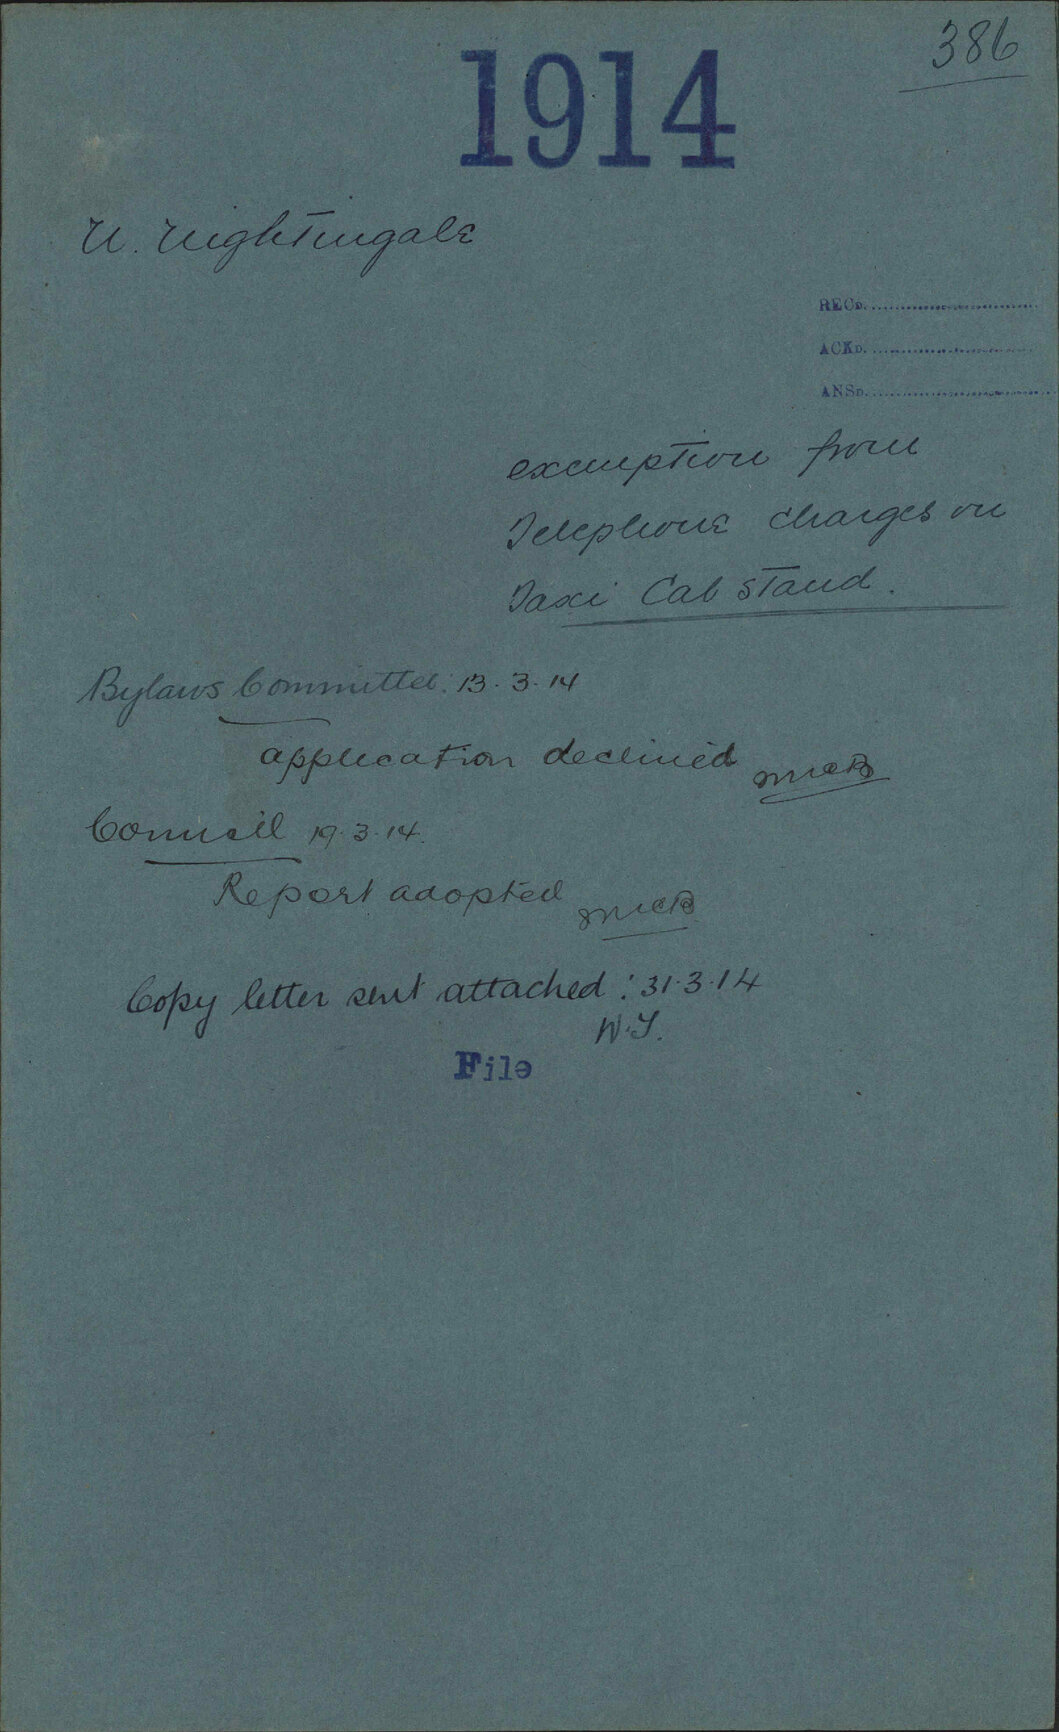 386
1914
N. Nightingale
RECD.
ACKD.
ANSD.
exemption from
Telephone charges on
Taxi Cab Stand.
Bylaws Committee: 13.3.14
application declined
Council 19.3.14.
Report adopted
Copy letter sent attached: 31.3.14
File